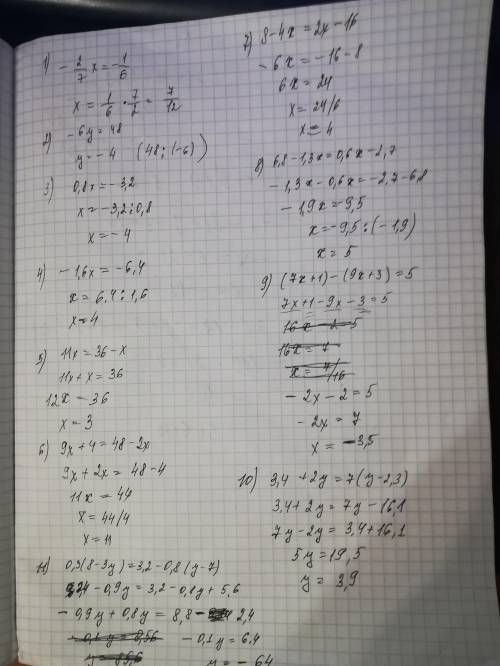 1) -2/7 x = -1/6
x = 1/6 · 7/2 = 7/12
2) -6y = 48
y = -4 (48 : (-6))
3) 0,8x = -3,2
x = -3,2 : 0,8
x = -4
4) -1,6x = -6,4
x = 6,4 : 1,6
x = 4
5) 11x = 36 - x
11x + x = 36
12x = 36
x = 3
6) 9x + 4 = 48 - 2x
9x + 2x = 48 - 4
11x = 44
x = 44/4
x = 11
11) 0,3(8 - 3y) = 3,2 - 0,8(y - 7)
2,4 - 0,9y = 3,2 - 0,8y + 5,6
-0,9y + 0,8y = 8,8 - 2,4
-0,1y = 8,56 -0,1y = 6,4
y = -85,6 y = -64
7) 8 - 4x = 2x - 16
-6x = -16 - 8
6x = 24
x = 24/6
x = 4
8) 6,8 - 1,3x = 0,6x - 2,7
-1,3x - 0,6x = -2,7 - 6,8
-1,9x = -9,5
x = -9,5 : (-1,9)
x = 5
9) (7x + 1) - (9x + 3) = 5
7x + 1 - 9x - 3 = 5
16x - 2 = 5
16x = 7
x = 7/16
-2x - 2 = 5
-2x = 7
x = -3,5
10) 3,4 + 2y = 7(y - 2,3)
3,4 + 2y = 7y - 16,1
7y - 2y = 3,4 + 16,1
5y = 19,5
y = 3,9